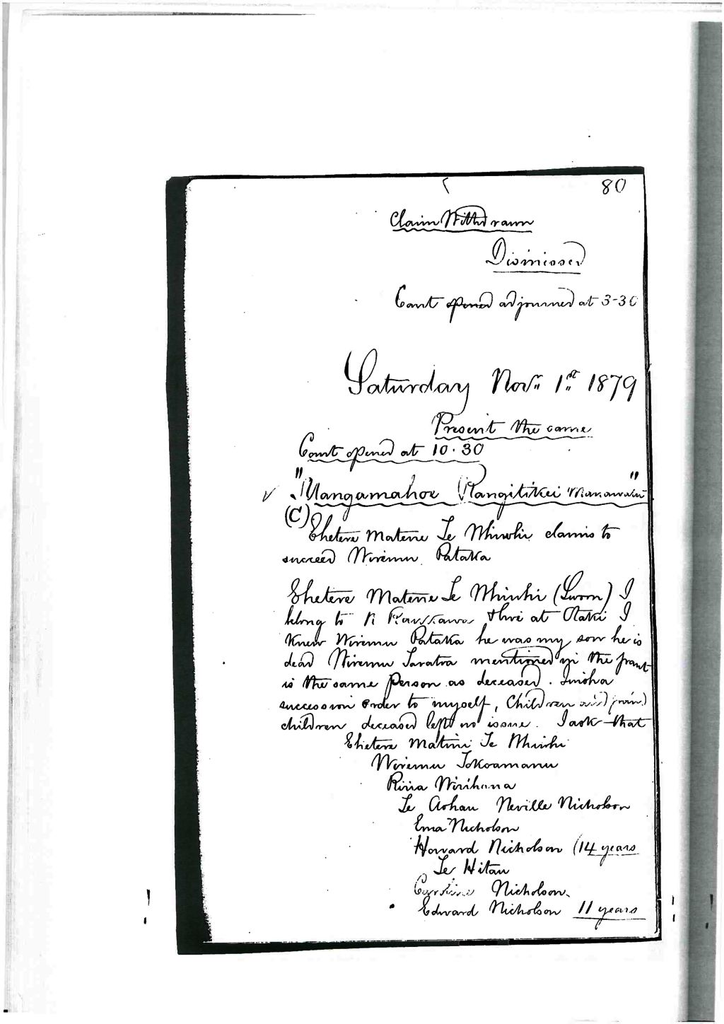 80
Claim Withdrawn
Dismissed
Court opened adjourned at 3-30
Saturday Novr. 1st 1879
Present the same
Court opened at 10.30
"Mangamahoe Rangitikei Manawatu"
(C)
Ehetere Matene Te Whiwhi claims to
succeed Wiremu Pataka
Ehetere Matene Te Whiwhi (Sworn) I
belong to N Raukawa & live at Otaki I
knew Wiremu Pataka he was my son he is
dead Wiremu mentioned in the grant
is the same person as deceased. I wish a
succession order to myself, Children and grand
children deceased left no issue. I ask that
Ehetere Matini Te Whiwhi
Wiremu Tokoamanu
Riria Wirihana
Te Aohau Neville Nicholson
Ema Nicholson
Howard Nicholson (14 years
Te Hitau
Nicholson
Edward Nicholson 11 years